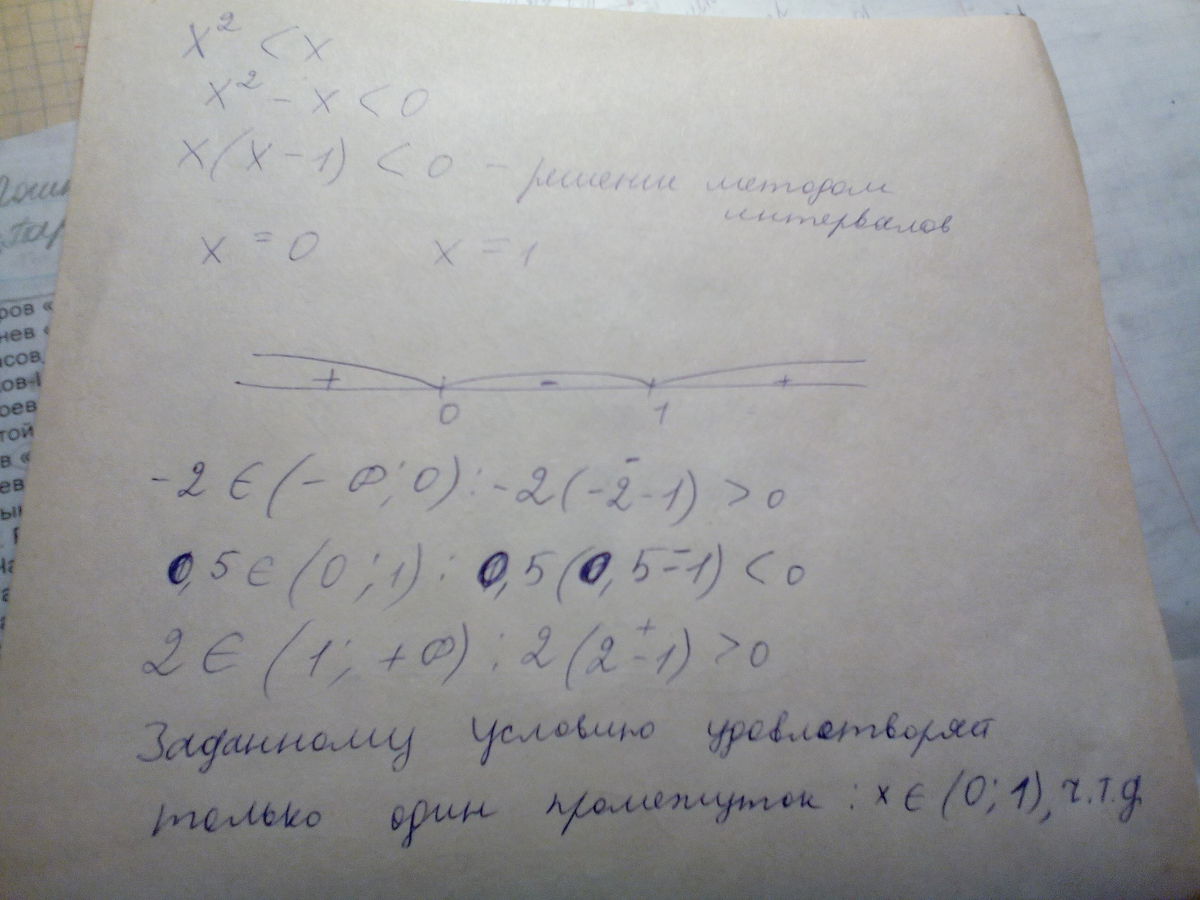 x² < x
x² - x < 0
x(x-1) < 0 - решение методом
интервалов
x = 0 x = 1
+ - +
0 1
-2 ∈ (-∞; 0) : -2(-2-1) > 0
-
0,5 ∈ (0; 1) : 0,5(0,5-1) < 0
-
2 ∈ (1; +∞) : 2(2-1) > 0
+
Заданному условию удовлетворяет
только один промежуток : x ∈ (0; 1), ч.т.д.
ров «
нев «
сов,
ов-
оев
той
в «
ев